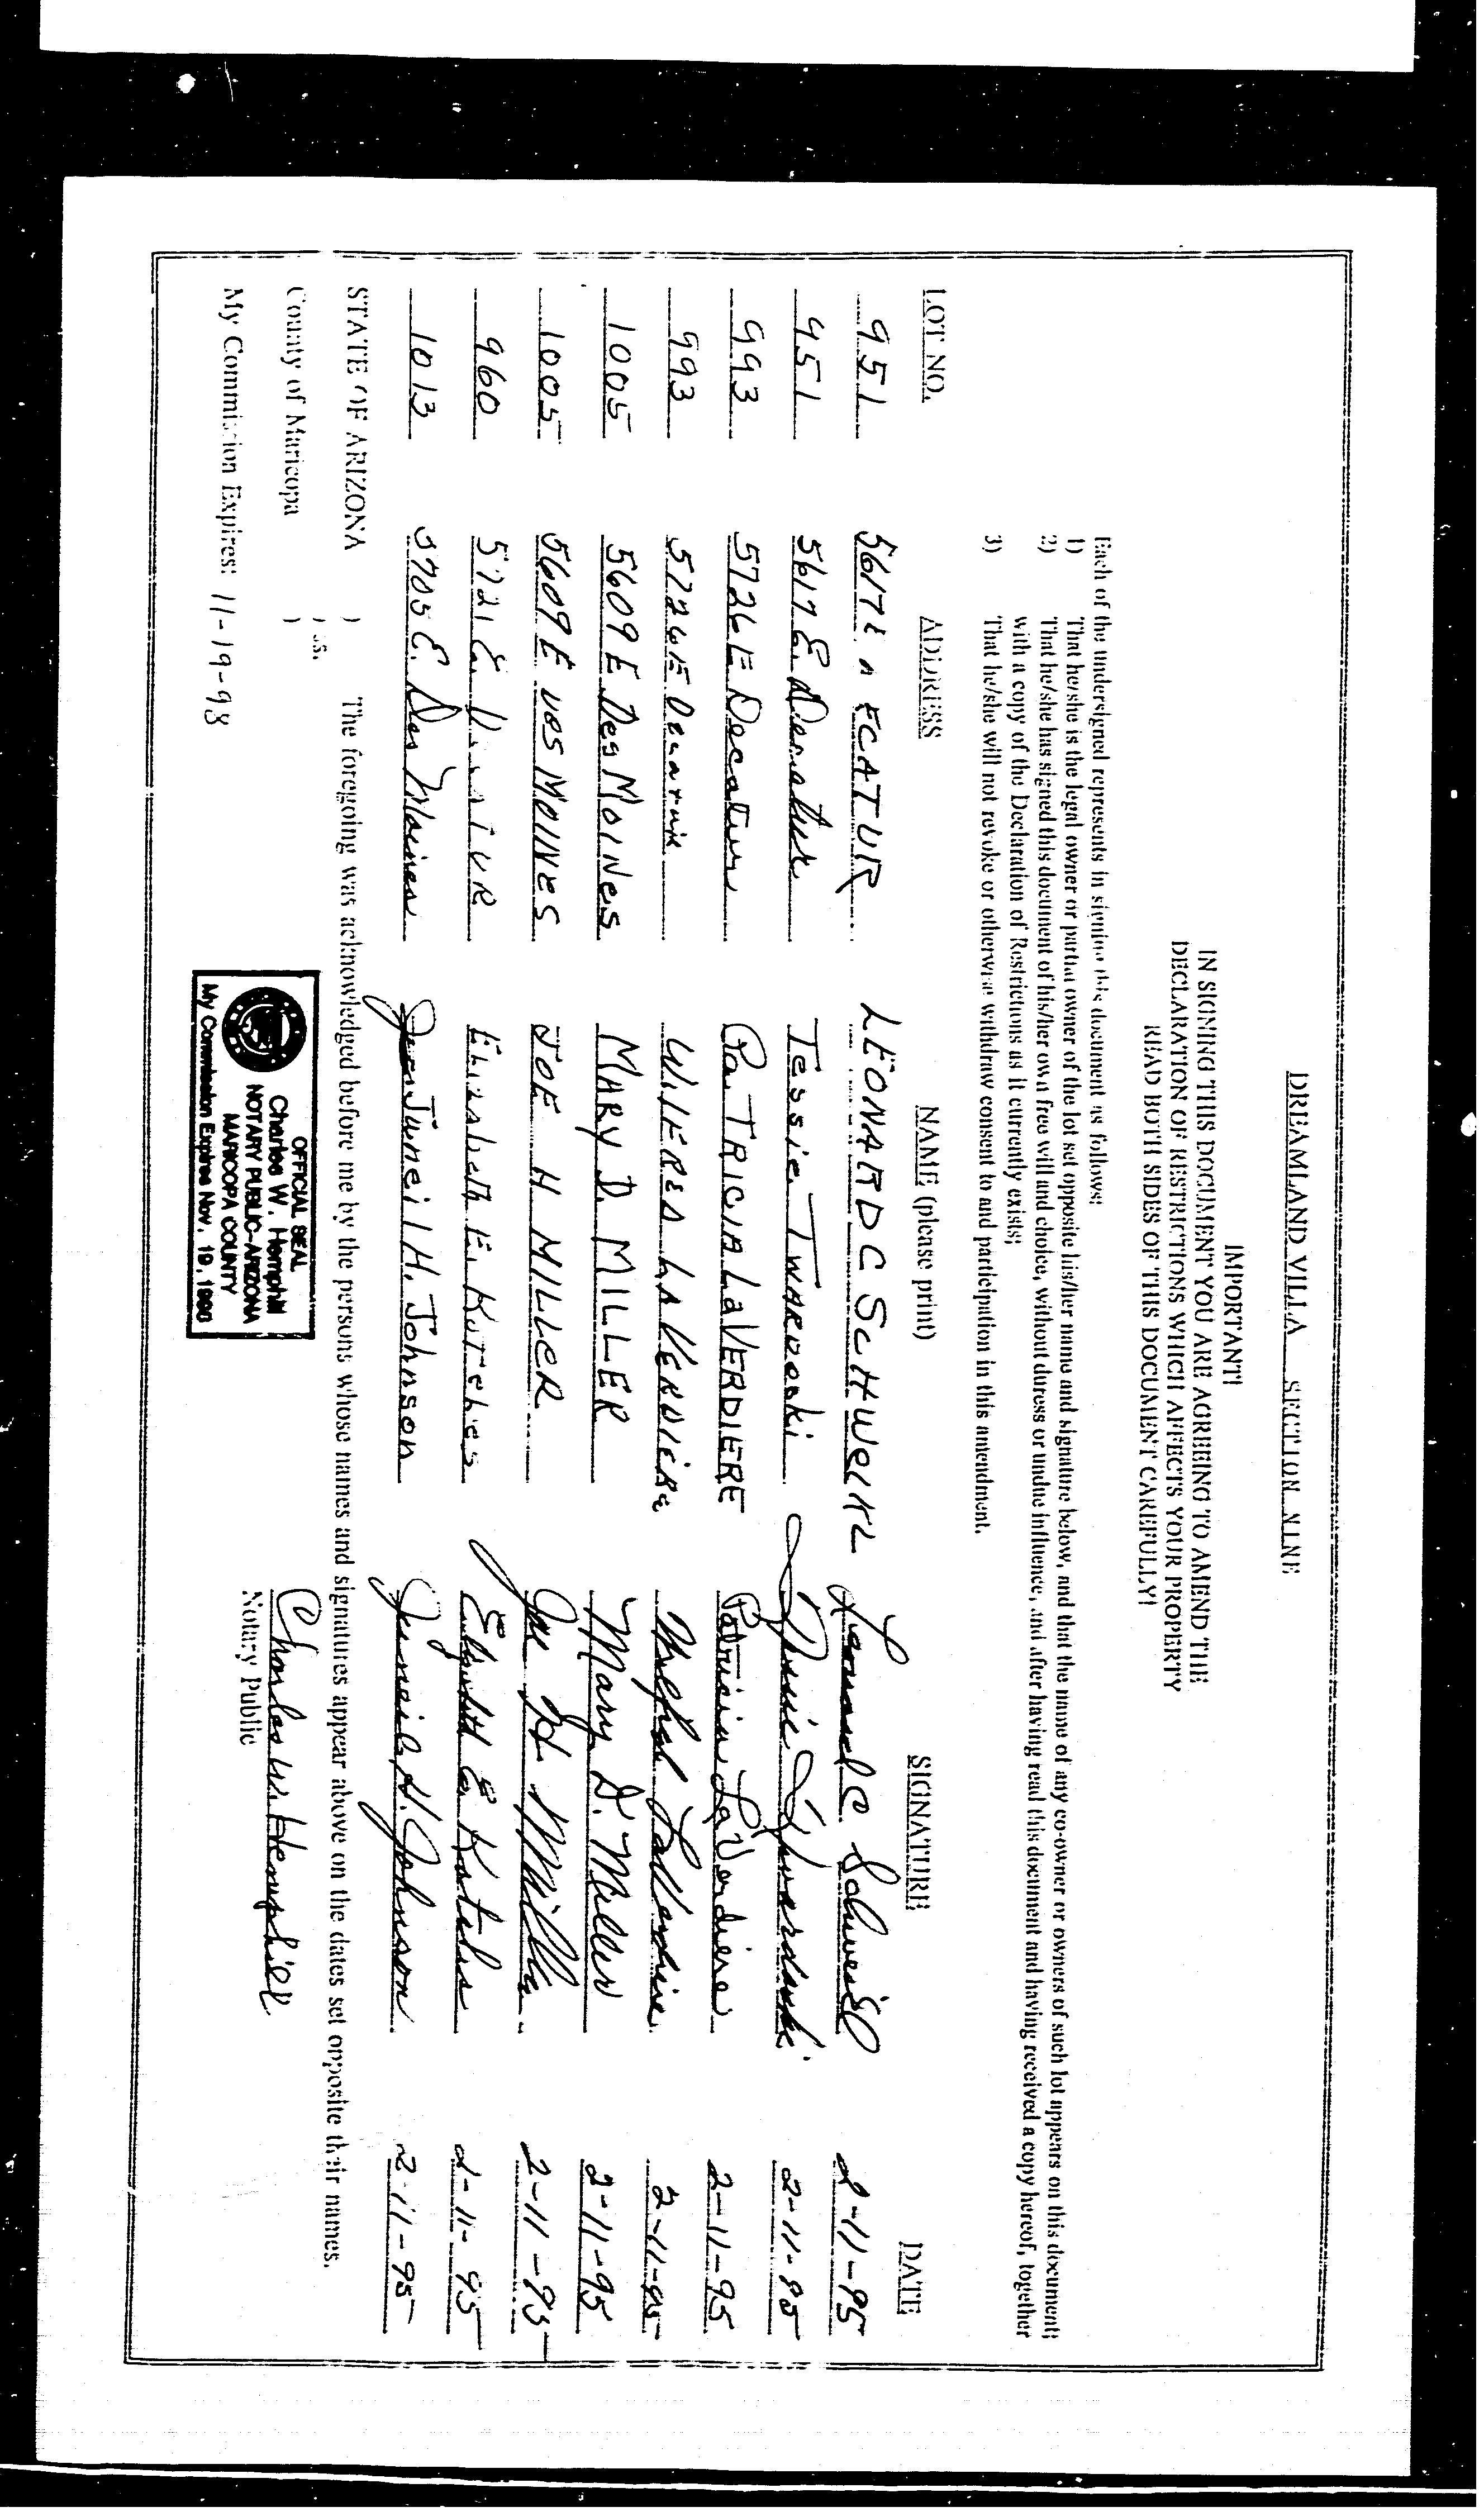 DREAMLAND VILLA SECTION NINE
IMPORTANT!
IN SIGNING THIS DOCUMENT YOU ARE AGREEING TO AMEND THE
DECLARATION OF RESTRICTIONS WHICH AFFECTS YOUR PROPERTY
READ BOTH SIDES OF THIS DOCUMENT CAREFULLY!
Each of the undersigned represents in signing this document as follows:
1) That he/she is the legal owner or partial owner of the lot set opposite his/her name and signature below, and that the name of any co-owner or owners of such lot appears on this document;
2) That he/she has signed this document of his/her own free will and choice, without duress or undue influence, and after having read this document and having received a copy hereof, together
with a copy of the Declaration of Restrictions as it currently exists;
3) That he/she will not revoke or otherwise withdraw consent to and participation in this amendment.
LOT NO. ADDRESS NAME (please print) SIGNATURE DATE
951 5617 E ECATUR LEONARD C SCHWEIKL Leonard C 2-11-95
951 5617 E. Decatur Tessie Twardoski Tessie 2-11-95
993 5726 E Decatur PaTRICIA LaVERDIERE Patricia LaVerdiere 2-11-95
993 5726 E LAVERDIERE 2-11-95
1005 5609 E Des MoiNes MARY D. MILLER Mary D. Miller 2-11-95
1005 5609 E DES MOINES JOE H MILLER Joe H Miller 2-11-95
960 5721 E. Elizabeth E. Elizabeth E 2-11-95
1013 5705 E. Des Moines Juneil H. Johnson Juneil H. Johnson 2-11-95
STATE OF ARIZONA )
) ss.
County of Maricopa )
The foregoing was acknowledged before me by the persons whose names and signatures appear above on the dates set opposite their names.
My Commission Expires: 11-19-98
Charles W. Hemphill
Notary Public
OFFICIAL SEAL
Charles W. Hemphill
NOTARY PUBLIC-ARIZONA
MARICOPA COUNTY
My Commission Expires Nov. 19,